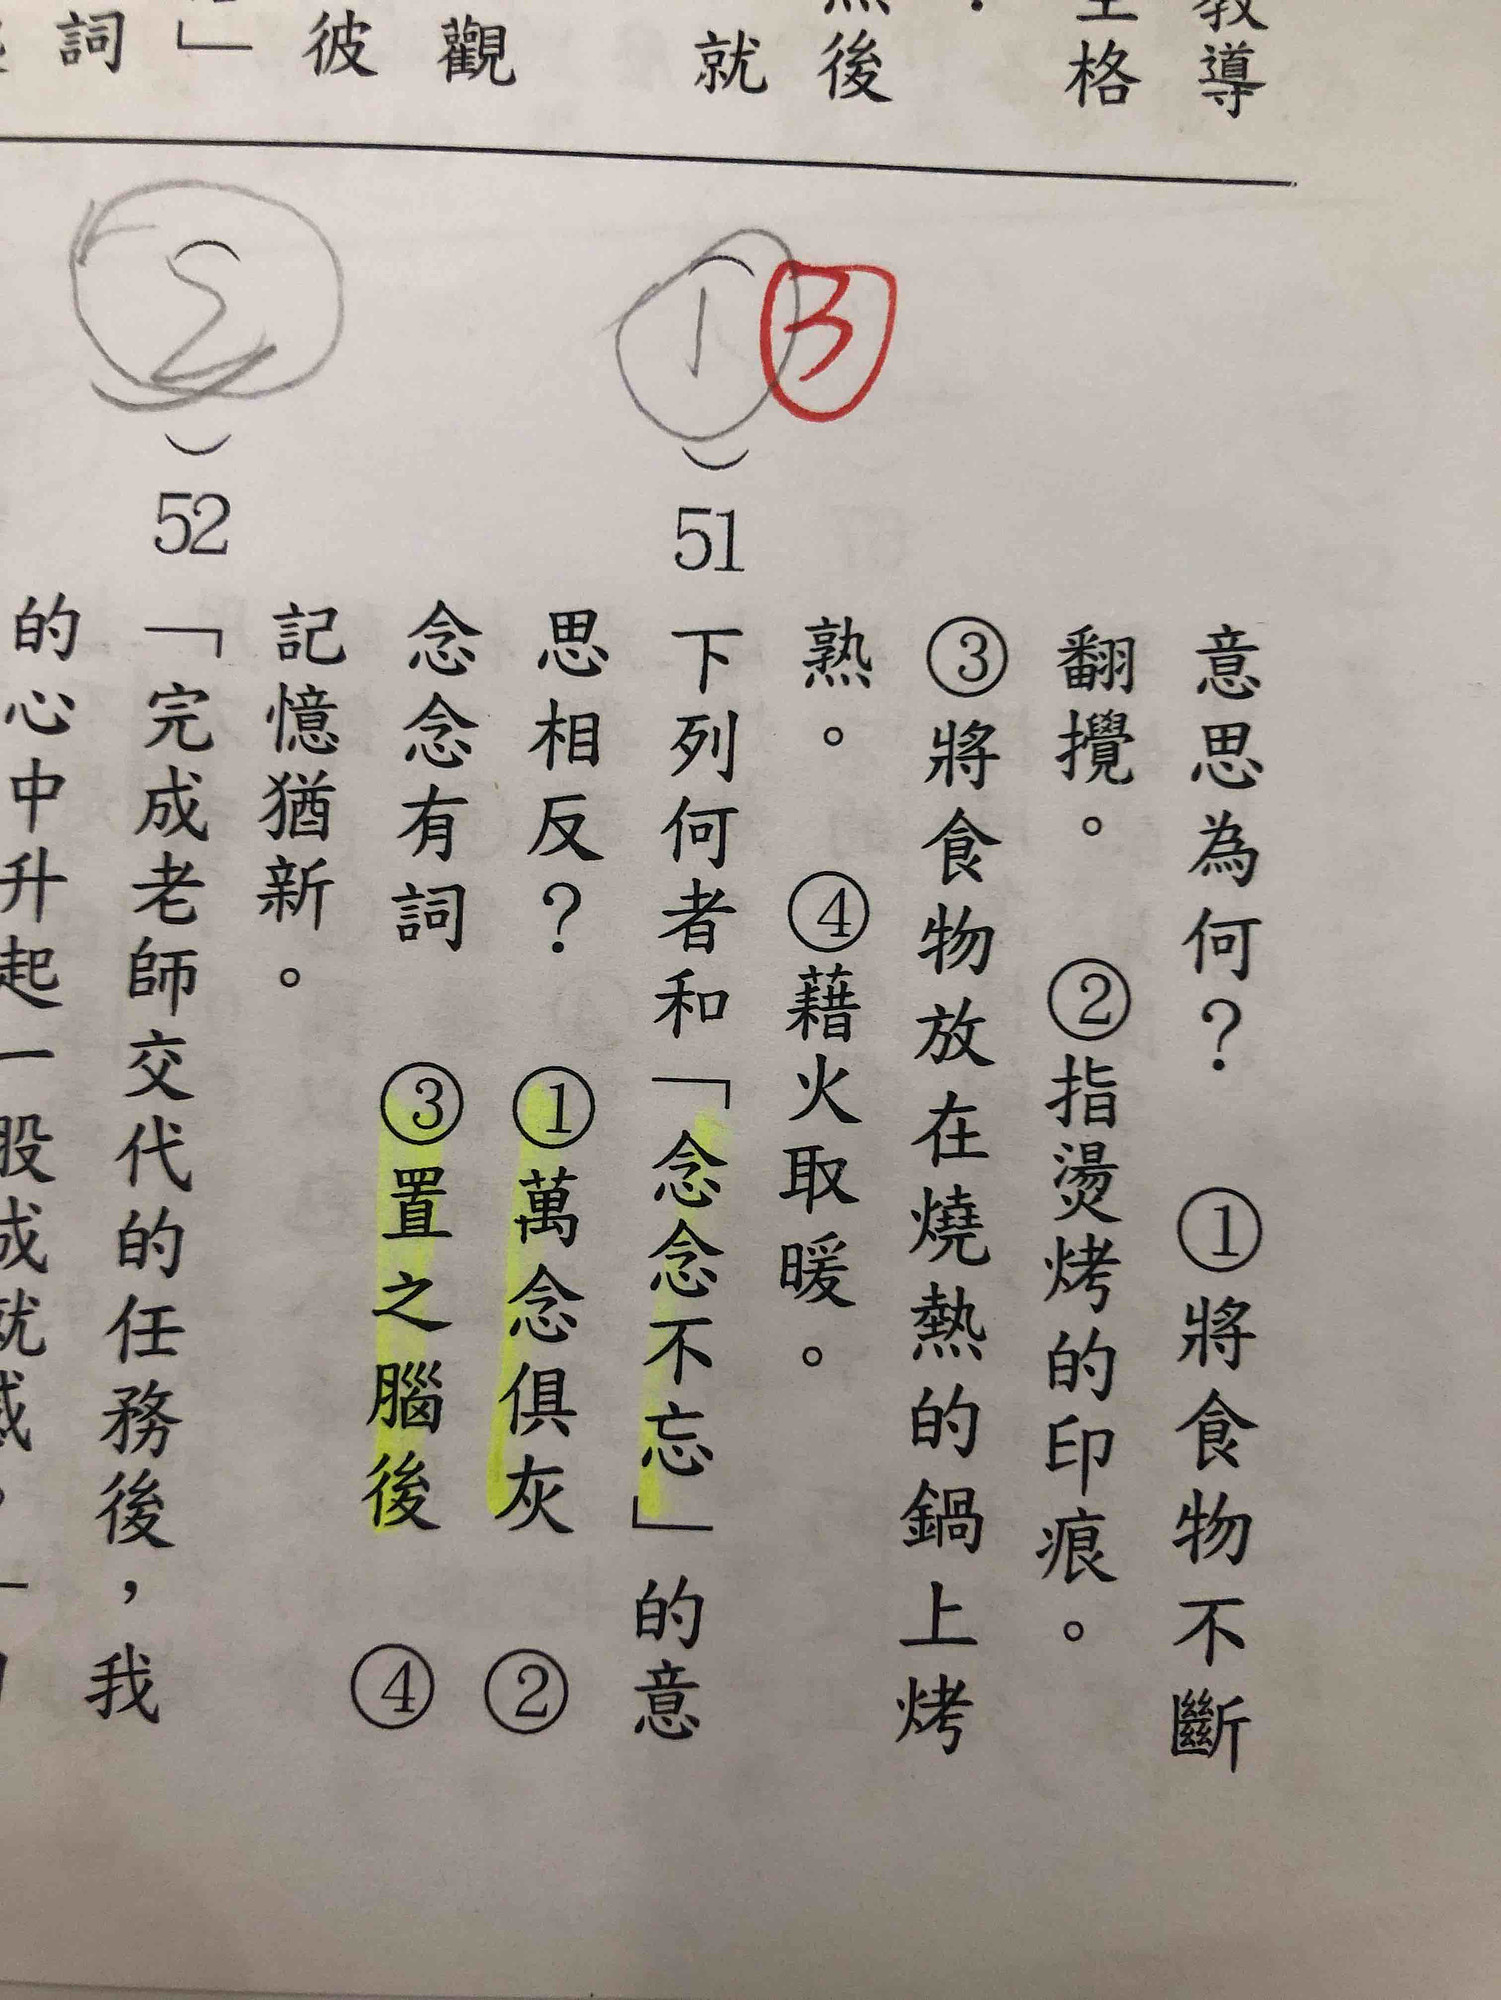 教導
格
後
就
觀
彼
」
詞
意思為何？ ①將食物不斷
翻攪。 ②指燙烤的印痕。
③將食物放在燒熱的鍋上烤
熟。 ④藉火取暖。
3
(1) 51 下列何者和「念念不忘」的意
思相反？ ①萬念俱灰 ②
念念有詞 ③置之腦後 ④
記憶猶新。
(2) 52 「完成老師交代的任務後，我
的心中升起一股成就感，